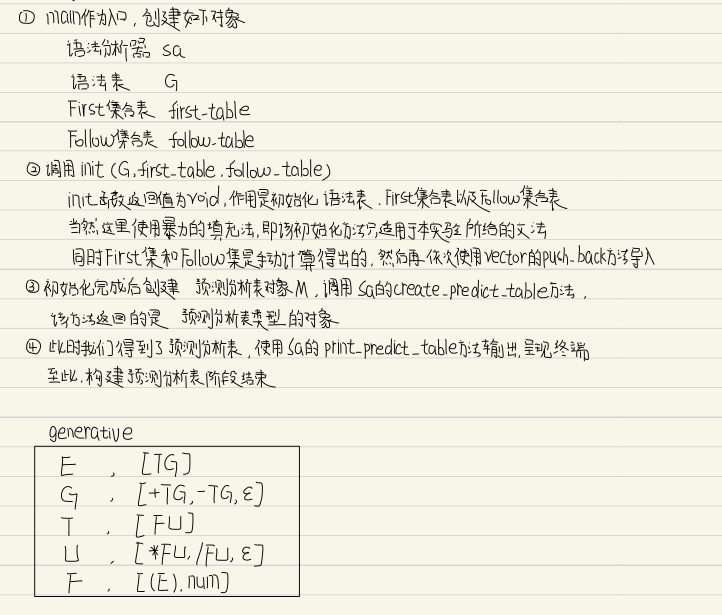 ① main作为入口，创建如下对象
语法分析器 sa
语法表 G
First集合表 first_table
Follow集合表 follow_table
② 调用init (G, first_table, follow_table)
init函数返回值为void, 作用是初始化 语法表、First集合表以及Follow集合表
当然,这里使用暴力的填充法, 即该初始化方法只适用于本实验所给的文法
同时First集和Follow集是手动计算得出的, 然后再依次使用vector的push_back方法导入
③ 初始化完成后创建 预测分析表对象M, 调用sa的create_predict_table方法,
该方法返回的是 预测分析表类型的对象
④ 此时我们得到了预测分析表, 使用sa的print_predict_table方法输出,呈现终端
至此, 构建预测分析表阶段结束
generative
E , [TG]
G , [+TG, -TG, ε]
T , [FU]
U , [*FU, /FU, ε]
F , [(E), num]